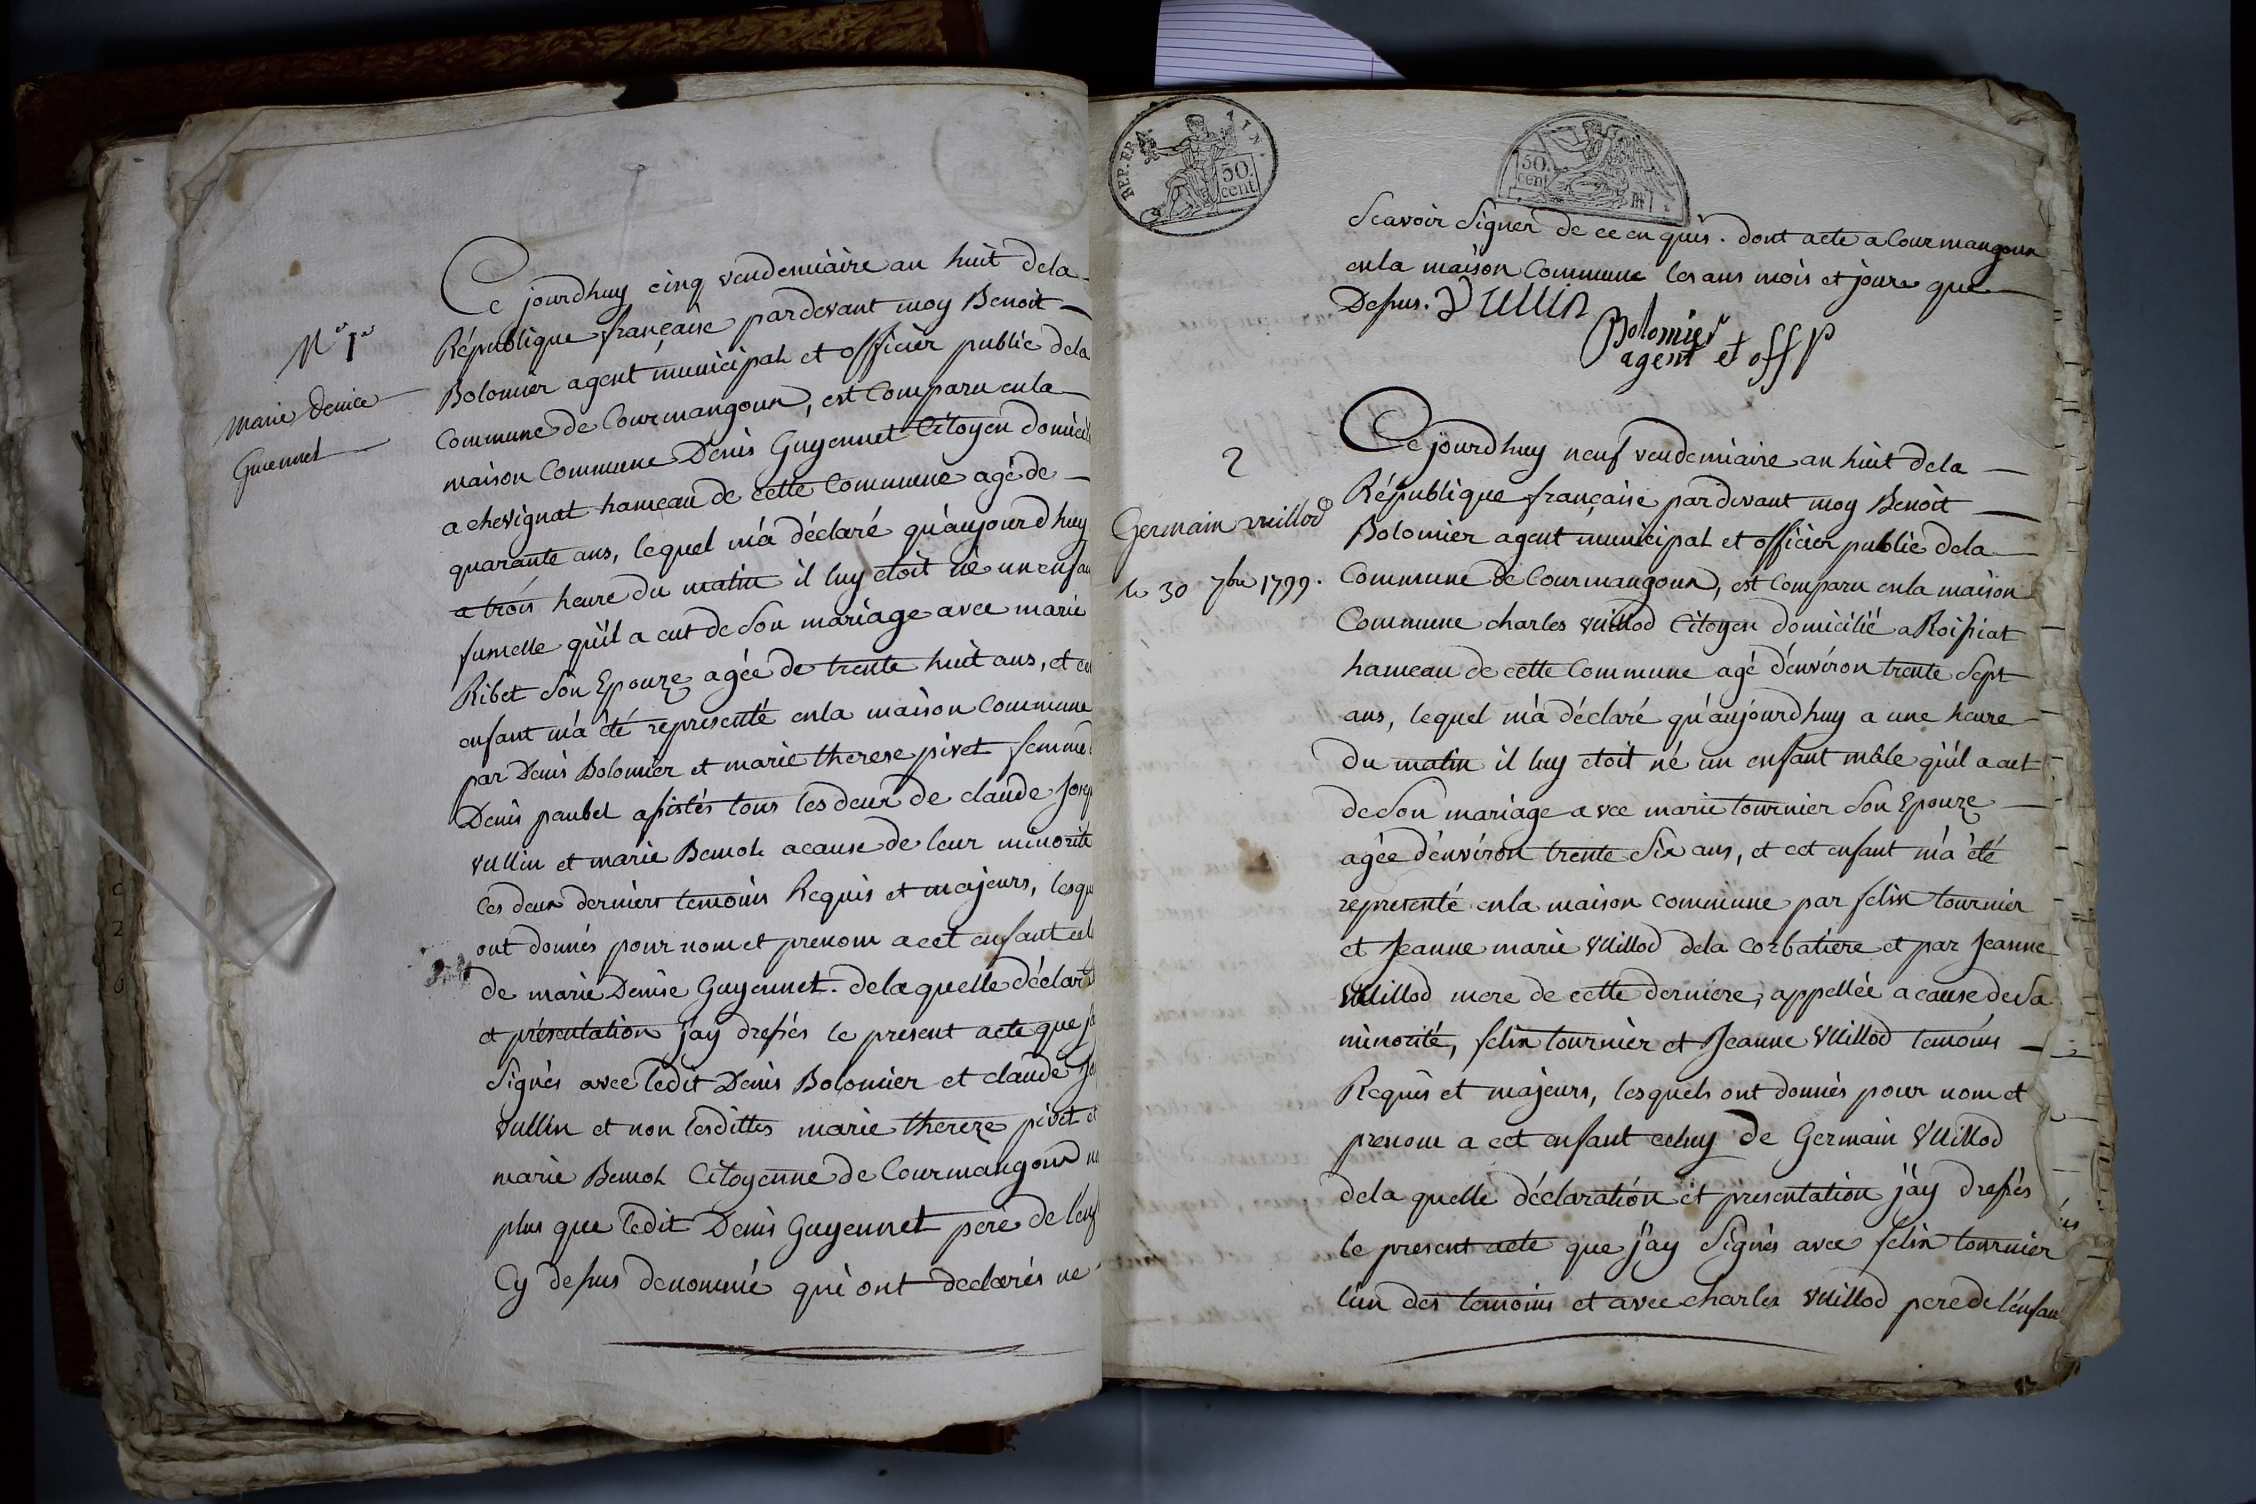 N° 1er
marie denice
Guennet
Ce jourdhuy cinq vendemiaire an huit dela
République française pardevant moy Benoit
Bolomier agent municipal et officier public dela
Commune de Courmangoux, est Comparu enla
maison Commune Denis Guyennet Citoyen domicil
a chevignat hameau de cette Commune agé de
quarante ans, lequel m'a déclaré qu'aujourdhuy
a trois heure du matin il luy etoit né un enfan
fumelle qu'il a eut de Son mariage avec marie
Ribet Son Epouze agée de trente huit ans, et cet
enfant m'a été representé enla maison Commune
par Denis Bolomier et marie therese pivet femme
Denis paubel assistés tous les deux de claude Josep
Vullin et marie Bemol acause de leur minorité
Ces deux derniers temoins Requis et majeurs, lesqu
ont donnés pour nom et prenom a cet enfant cel
de marie Denise Guyennet. dela quelle déclarat
et présentation j'ay dressés le present acte que j'a
Signés avec ledit Denis Bolomier et claude Jo
Vullin et non lesdittes marie thereze pivet et
marie Bemol Citoyenne de Courmangoux n
plus que ledit Denis Guyennet pere de lenf
Cy dessus denommé qui ont declarés ne
REP. FRA
50. cent
50. cent
Scavoir Signer de ce en quis. dont acte a Courmangoux
enla maison Commune les ans mois et jours que
Dessus. Vullin
Bolomier
agent et off P
2
Germain vuillod
le 30 7bre 1799.
Ce jourdhuy neuf vendemiaire an huit dela
République française pardevant moy Benoit
Bolomier agent municipal et officier public dela
Commune de Courmangoux, est Comparu enla maison
Commune charles Vuillod Citoyen domicilié a Roissiat
hameau de cette Commune agé d'environ trente Sept
ans, lequel m'a déclaré qu'aujourdhuy a une heure
du matin il luy etoit né un enfant mâle qu'il a eut
de Son mariage avec marie tournier Son Epouze
agée d'environ trente Six ans, et cet enfant m'a été
representé enla maison commune par felix tournier
et Jeanne marie Vuillod dela Corbatiere et par Jeanne
Vuillod mere de cette derniere, appellée a cause de Sa
minorité, felix tournier et Jeanne Vuillod temoins
Requis et majeurs, lesquels ont donnés pour nom et
prenom a cet enfant celuy de Germain Vuillod
dela quelle déclaration et presentation j'ay dressés
le present acte que j'ay Signés avec felix tournier
l'un des temoins et avec charles Vuillod pere de l'enfan